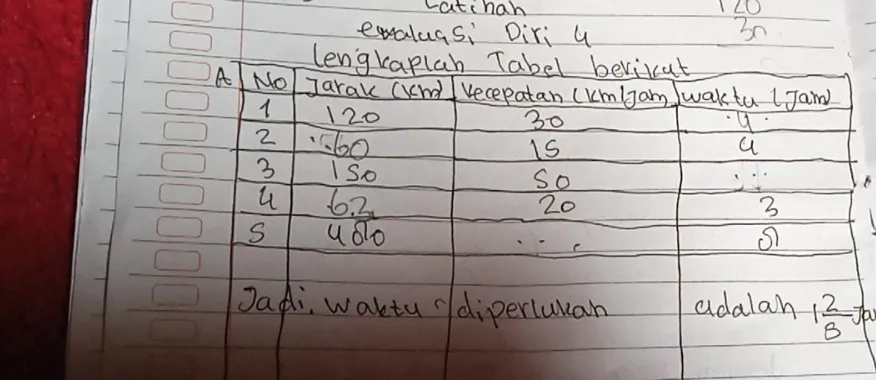 Latihan 120
evaluasi Diri 4 30
lengkaplah Tabel berikut
A No Jarak (km) kecepatan (km/Jam) waktu (Jam)
1 120 30 .4.
2 ..60 15 4
3 150 50 ...
4 62 20 3
5 400 ...
Jadi, waktu diperlukan adalah 1 2/8 Ja